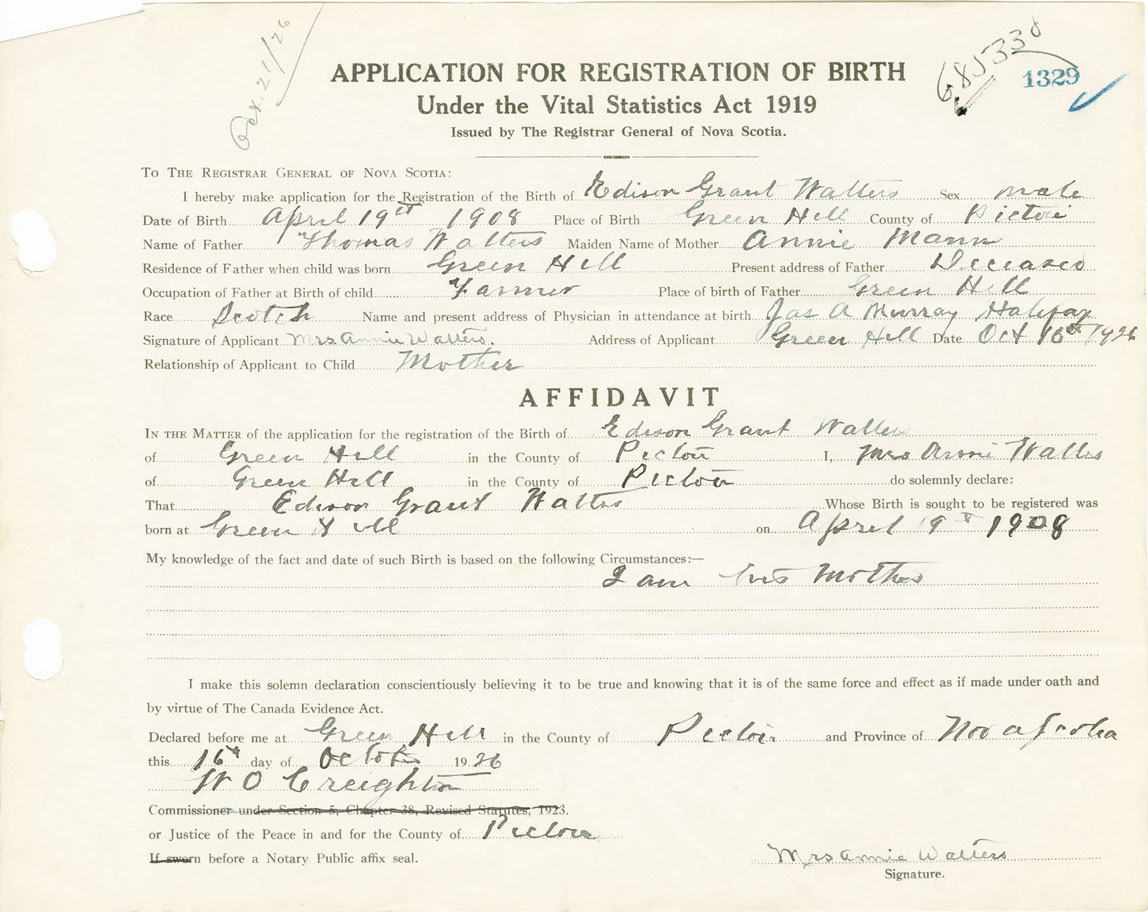 Oct. 21/26
685330
1329
APPLICATION FOR REGISTRATION OF BIRTH
Under the Vital Statistics Act 1919
Issued by The Registrar General of Nova Scotia.
TO THE REGISTRAR GENERAL OF NOVA SCOTIA:
I hereby make application for the Registration of the Birth of Edison Grant Walters Sex male
Date of Birth April 19th 1908 Place of Birth Green Hill County of Pictou
Name of Father Thomas Walters Maiden Name of Mother Annie Mann
Residence of Father when child was born Green Hill Present address of Father Deceased
Occupation of Father at Birth of child Farmer Place of birth of Father Green Hill
Race Scotch Name and present address of Physician in attendance at birth Jas A Murray Halifax
Signature of Applicant Mrs Annie Walters. Address of Applicant Green Hill Date Oct 16th 1926
Relationship of Applicant to Child Mother
AFFIDAVIT
IN THE MATTER of the application for the registration of the Birth of Edison Grant Walters
of Green Hill in the County of Pictou I, Mrs Annie Walters
of Green Hill in the County of Pictou do solemnly declare:
That Edison Grant Walters Whose Birth is sought to be registered was
born at Green Hill on April 19th 1908
My knowledge of the fact and date of such Birth is based on the following Circumstances:—
I am his Mother
I make this solemn declaration conscientiously believing it to be true and knowing that it is of the same force and effect as if made under oath and
by virtue of The Canada Evidence Act.
Declared before me at Green Hill in the County of Pictou and Province of Nova Scotia
this 16th day of October 1926
W O Creighton
Commissioner under Section 5, Chapter 38, Revised Statutes, 1923.
or Justice of the Peace in and for the County of Pictou
If sworn before a Notary Public affix seal.
Mrs Annie Walters
Signature.